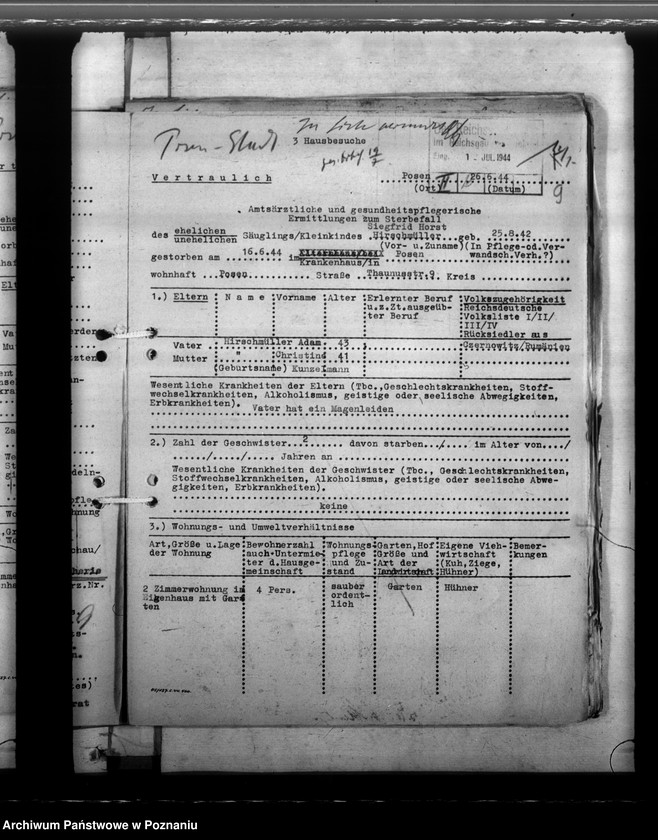 Posen-Stadt
3 Hausbesuche
1- JUL.1944
Vertraulich
Posen 26.6.44
(Ort) (Datum)
9
Amtsärztliche und gesundheitspflegerische
Ermittlungen zum Sterbefall
Siegfrid Horst
des ehelichen
unehelichen Säuglings/Kleinkindes Hirschmüller geb. 25.8.42
(Vor- u.Zuname)(In Pflege-od.Ver-
gestorben am 16.6.44 im Elternhaus/bei Posen wandsch.Verh.?)
Krankenhaus/in
wohnhaft ...Posen... Straße .Thaunusstr.9. Kreis
1.) Eltern Name Vorname Alter Erlernter Beruf Volkszugehörigkeit
u.z.Zt.ausgeüb- Reichsdeutsche
ter Beruf Volksliste I/II/
III/IV
Rücksiedler aus
Vater Hirschmüller Adam 43 Czernowitz/Rumänien
Mutter " Christine 41
(Geburtsname) Kunzelmann
Wesentliche Krankheiten der Eltern (Tbc.,Geschlechtskrankheiten, Stoff-
wechselkrankheiten, Alkoholismus, geistige oder seelische Abwegigkeiten,
Erbkrankheiten). Vater hat ein Magenleiden
2.) Zahl der Geschwister...2....... davon starben../.... im Alter von..../
....../...../..... Jahren an
Wesentliche Krankheiten der Geschwister (Tbc., Geschlechtskrankheiten,
Stoffwechselkrankheiten, Alkoholismus, geistige oder seelische Abwe-
gigkeiten, Erbkrankheiten).
keine
3.) Wohnungs- und Umweltverhältnisse
Art,Größe u.Lage Bewohnerzahl Wohnungs- Garten,Hof Eigene Vieh- Bemer-
der Wohnung auch Untermie- pflege Größe und wirtschaft kungen
ter d.Hausge- und Zu- Art der (Kuh,Ziege,
meinschaft stand Landwirtschaft Hühner)
2 Zimmerwohnung im 4 Pers. sauber Garten Hühner
Eigenhaus mit Gar- ordent-
ten lich
Archiwum Państwowe w Poznaniu